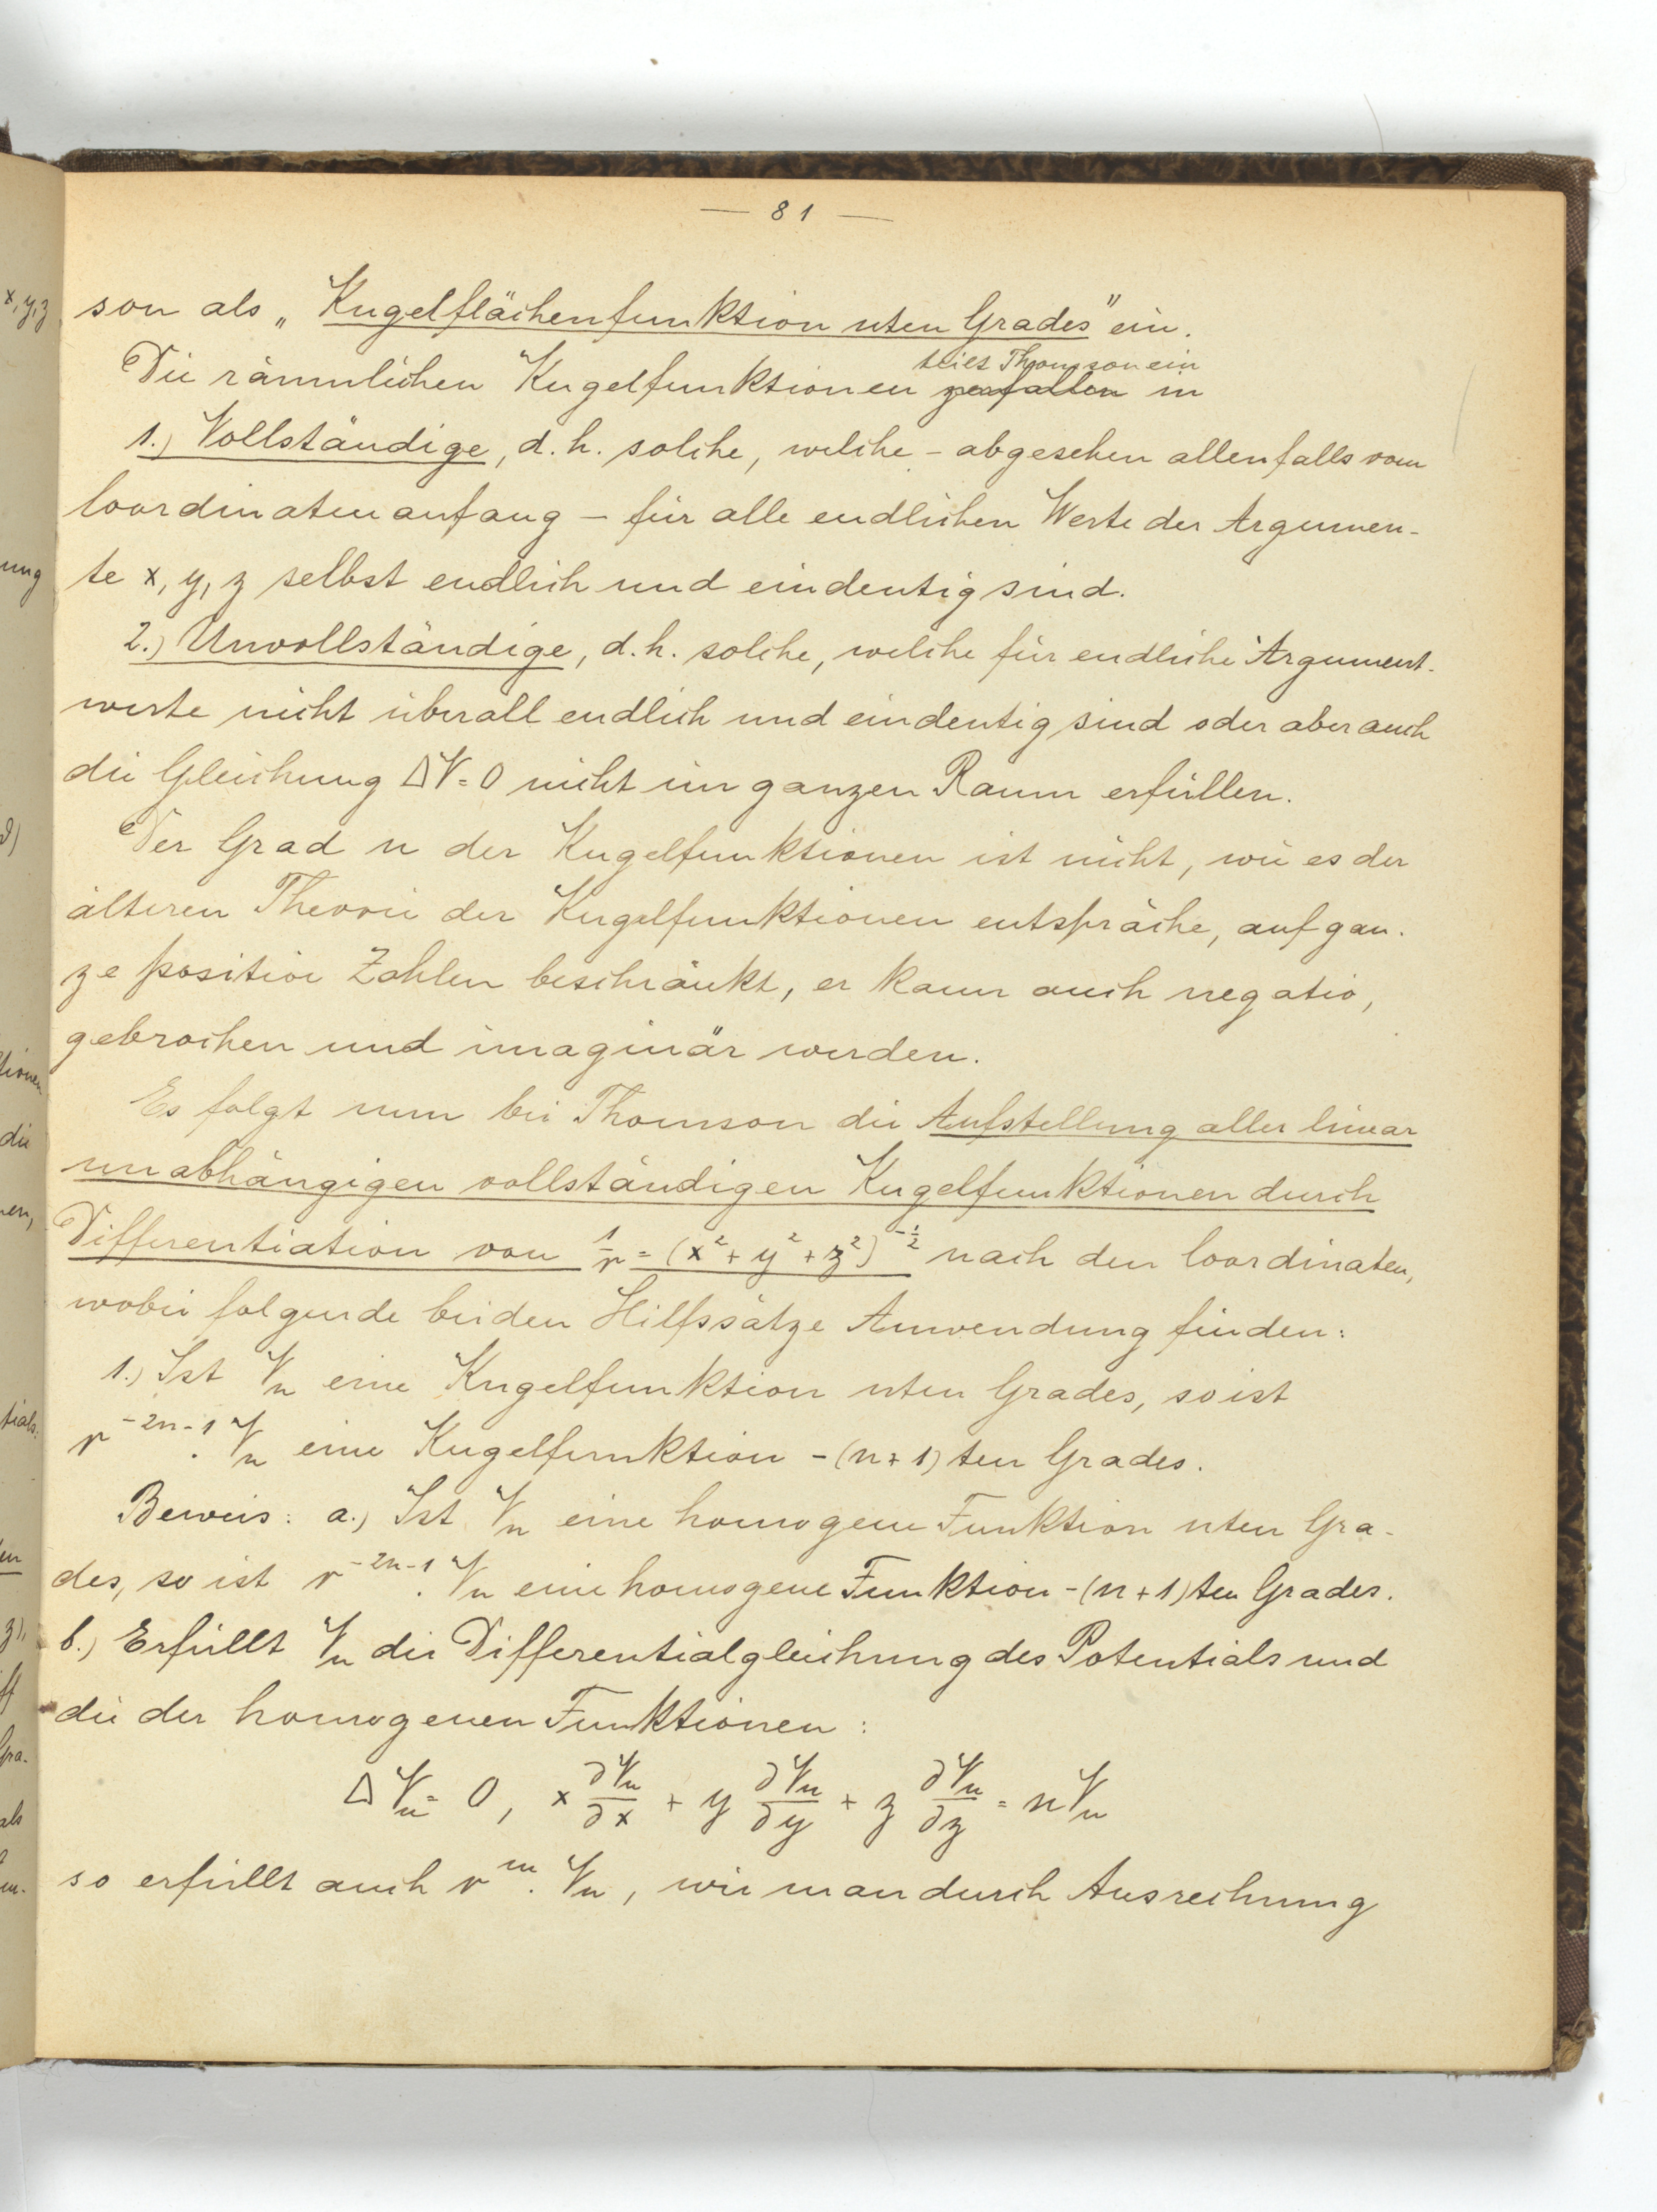 — 81 —
son als „Kugelflächenfunktion nten Grades" ein.
teilt Thomson ein
Die räumlichen Kugelfunktionen zerfallen in
1.) Vollständige, d. h. solche, welche – abgesehen allenfalls vom
Coordinatenanfang – für alle endlichen Werte der Argumen-
te x, y, z selbst endlich und eindeutig sind.
2.) Unvollständige, d. h. solche, welche für endliche Argument-
werte nicht überall endlich und eindeutig sind oder aber auch
die Gleichung ΔV = 0 nicht im ganzen Raum erfüllen.
Der Grad n der Kugelfunktionen ist nicht, wie es der
älteren Theorie der Kugelfunktionen entspräche, auf gan-
ze positive Zahlen beschränkt, er kann auch negativ,
gebrochen und imaginär werden.
Es folgt nun bei Thomson die Aufstellung aller linear
unabhängigen vollständigen Kugelfunktionen durch
Differentiation von 1/r = (x² + y² + z²)^(-1/2) nach den Coordinaten,
wobei folgende beiden Hilfssätze Anwendung finden:
1.) Ist Vₙ eine Kugelfunktion nten Grades, so ist
r^(-2n-1) · Vₙ eine Kugelfunktion -(n+1)ten Grades.
Beweis: a.) Ist Vₙ eine homogene Funktion nten Gra-
des, so ist r^(-2n-1) · Vₙ eine homogene Funktion -(n+1)ten Grades.
b.) Erfüllt Vₙ die Differentialgleichung des Potentials und
die der homogenen Funktionen:
ΔVₙ = 0, x ∂Vₙ/∂x + y ∂Vₙ/∂y + z ∂Vₙ/∂z = nVₙ
so erfüllt auch r^m · Vₙ, wie man durch Ausrechnung